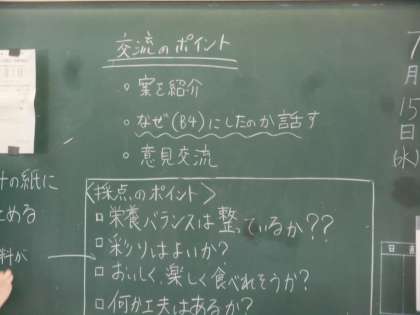 交流のポイント
○ 案を紹介
○ なぜ(B4)にしたのか話す
○ 意見交流
の紙に
める
料が
〈採点のポイント〉
□栄養バランスは整っているか??
□彩りはよいか?
□おいしく、楽しく食べれそうか?
□何か工夫はあるか?
7
月
15
日
(水)
日直